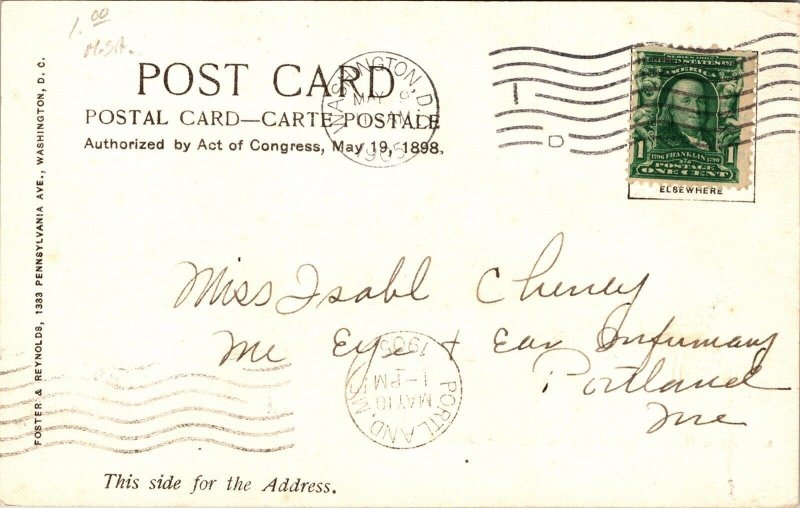 1.00
POST CARD
POSTAL CARD—CARTE POSTALE
Authorized by Act of Congress, May 19, 1898.
WASHINGTON, D.
MAY 9
1905
D
UNITED STATES OF
AMERICA
1706 FRANKLIN 1790
1 1
POSTAGE
ONE CENT
ELSEWHERE
FOSTER & REYNOLDS, 1333 PENNSYLVANIA AVE., WASHINGTON, D. C.
Miss Isabl Cheney
Me Eye & Ear Infirmary
Portland
Me
PORTLAND, ME.
MAY 10
1-PM
1905
This side for the Address.